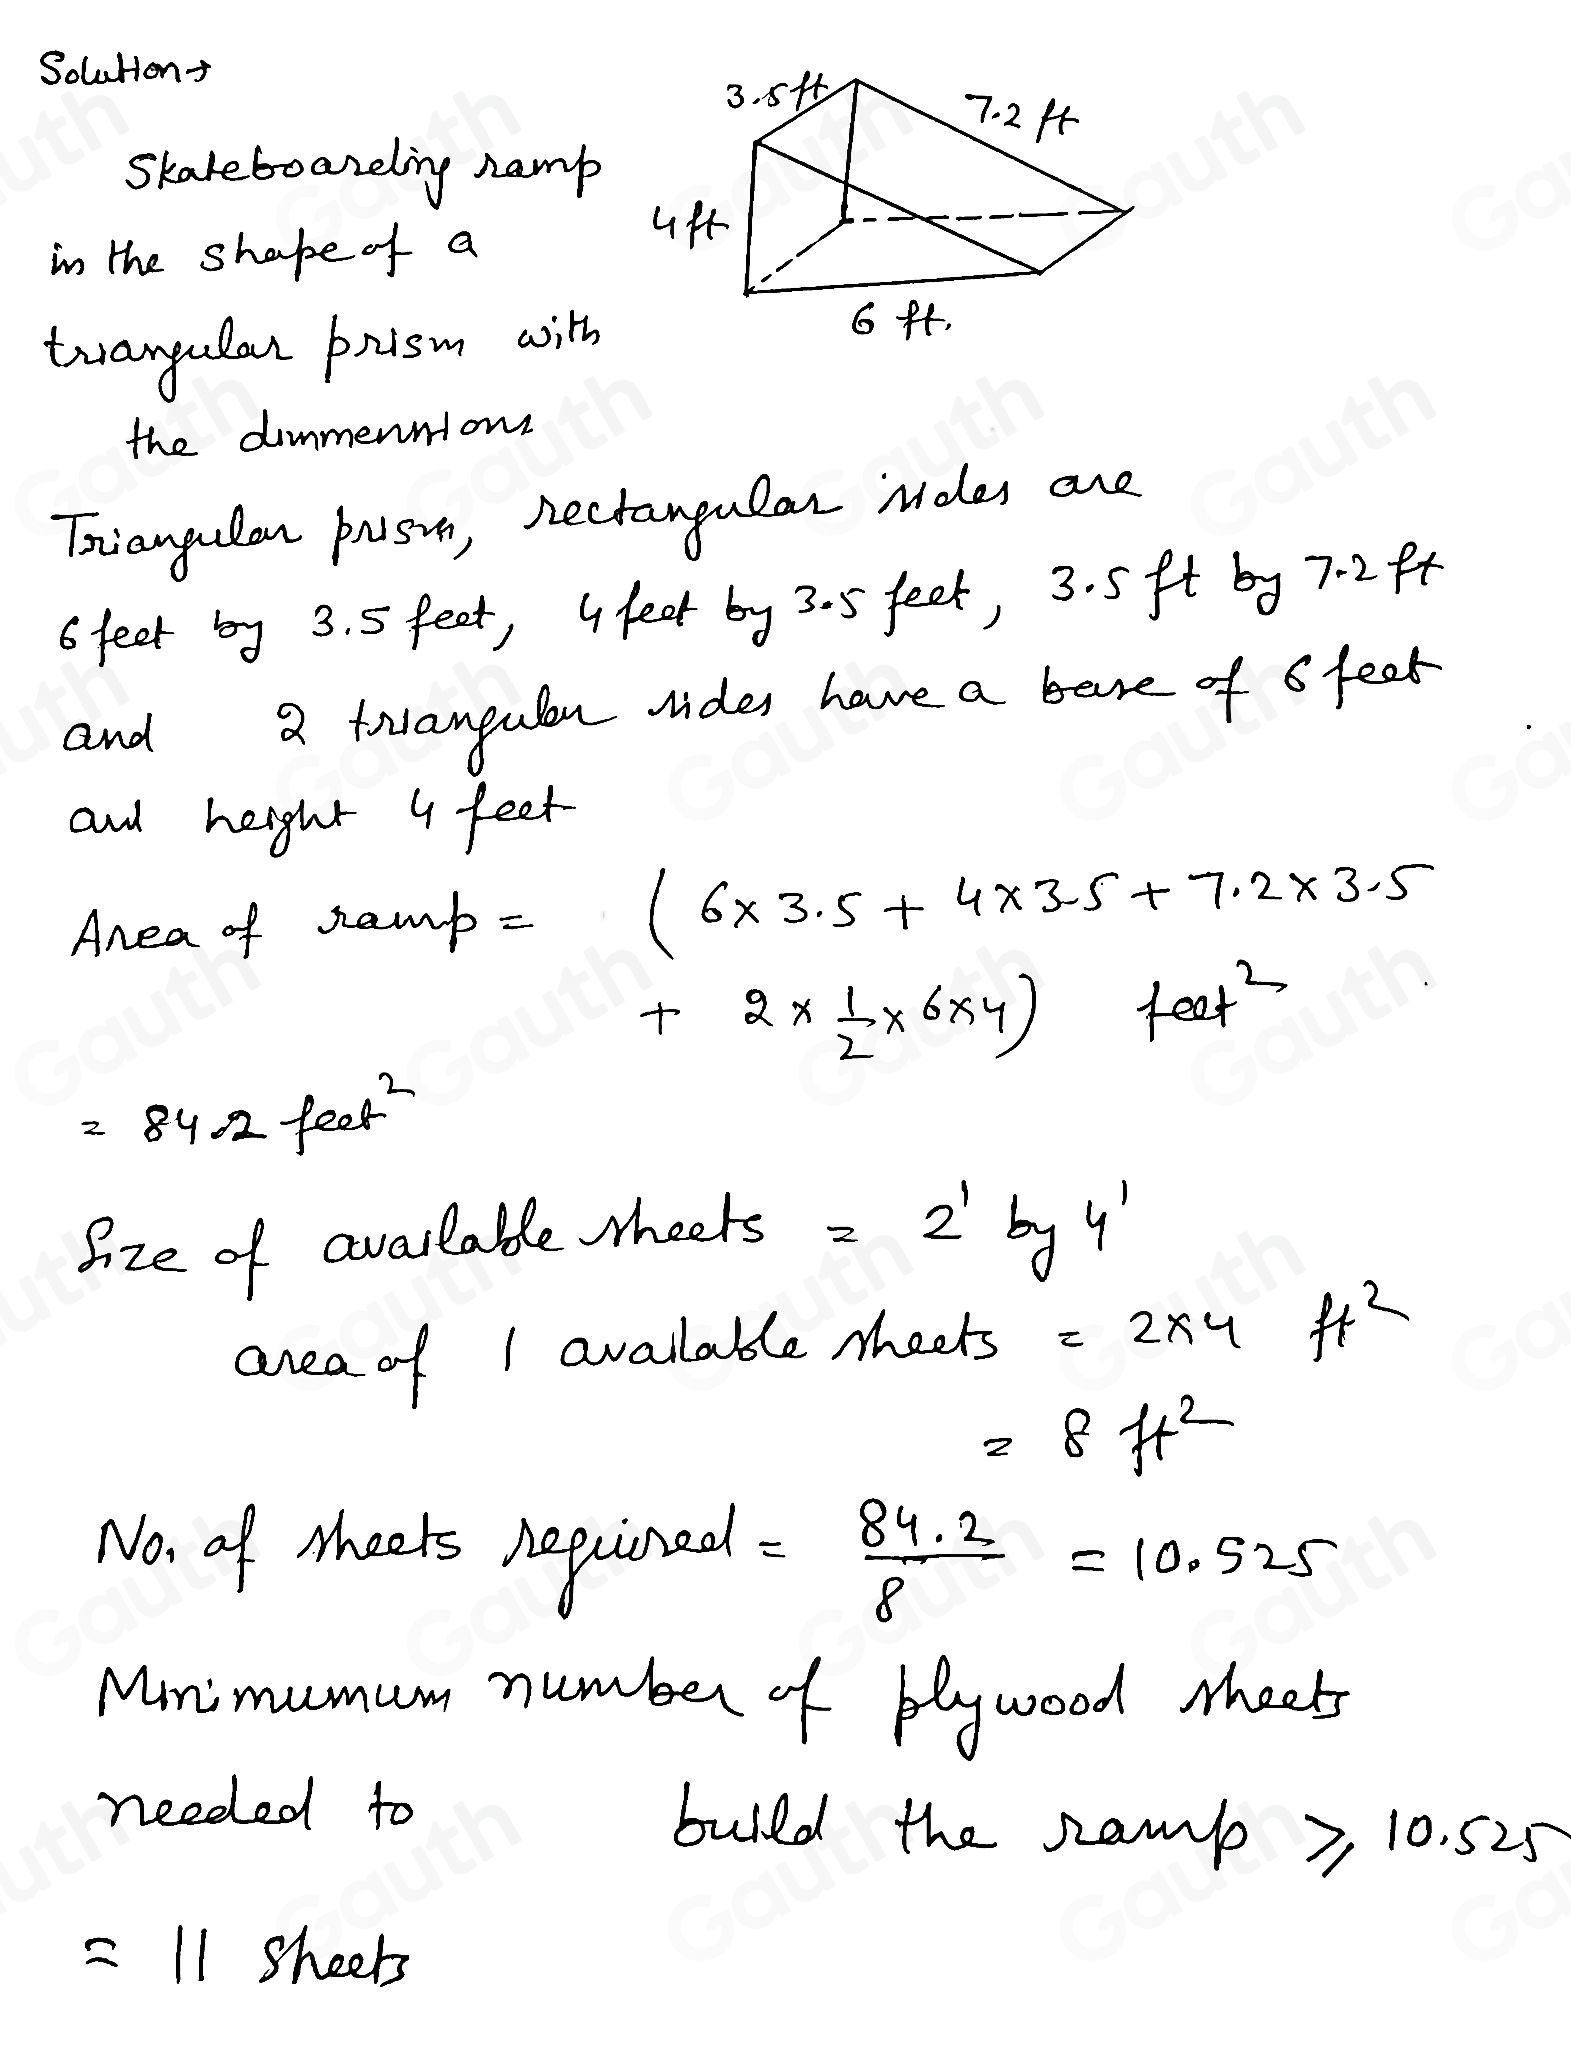 Solution→
3.5ft
7.2 ft
Skateboarding ramp
4ft
in the shape of a
6 ft.
triangular prism with
the dimmensions
Triangular prism, rectangular sides are
6 feet by 3.5 feet, 4 feet by 3.5 feet, 3.5 ft by 7.2 ft
and 2 triangular sides have a base of 6 feet
and height 4 feet
Area of ramp = (6×3.5 + 4×3.5 + 7.2×3.5
+ 2 × 1/2 × 6×4) feet²
= 84.2 feet²
Size of available sheets = 2' by 4'
area of 1 available sheets = 2×4 ft²
= 8 ft²
No. of sheets required = 84.2/8 = 10.525
Minimumum number of plywood sheets
needed to build the ramp ⩾ 10.525
= 11 sheets
Gauth